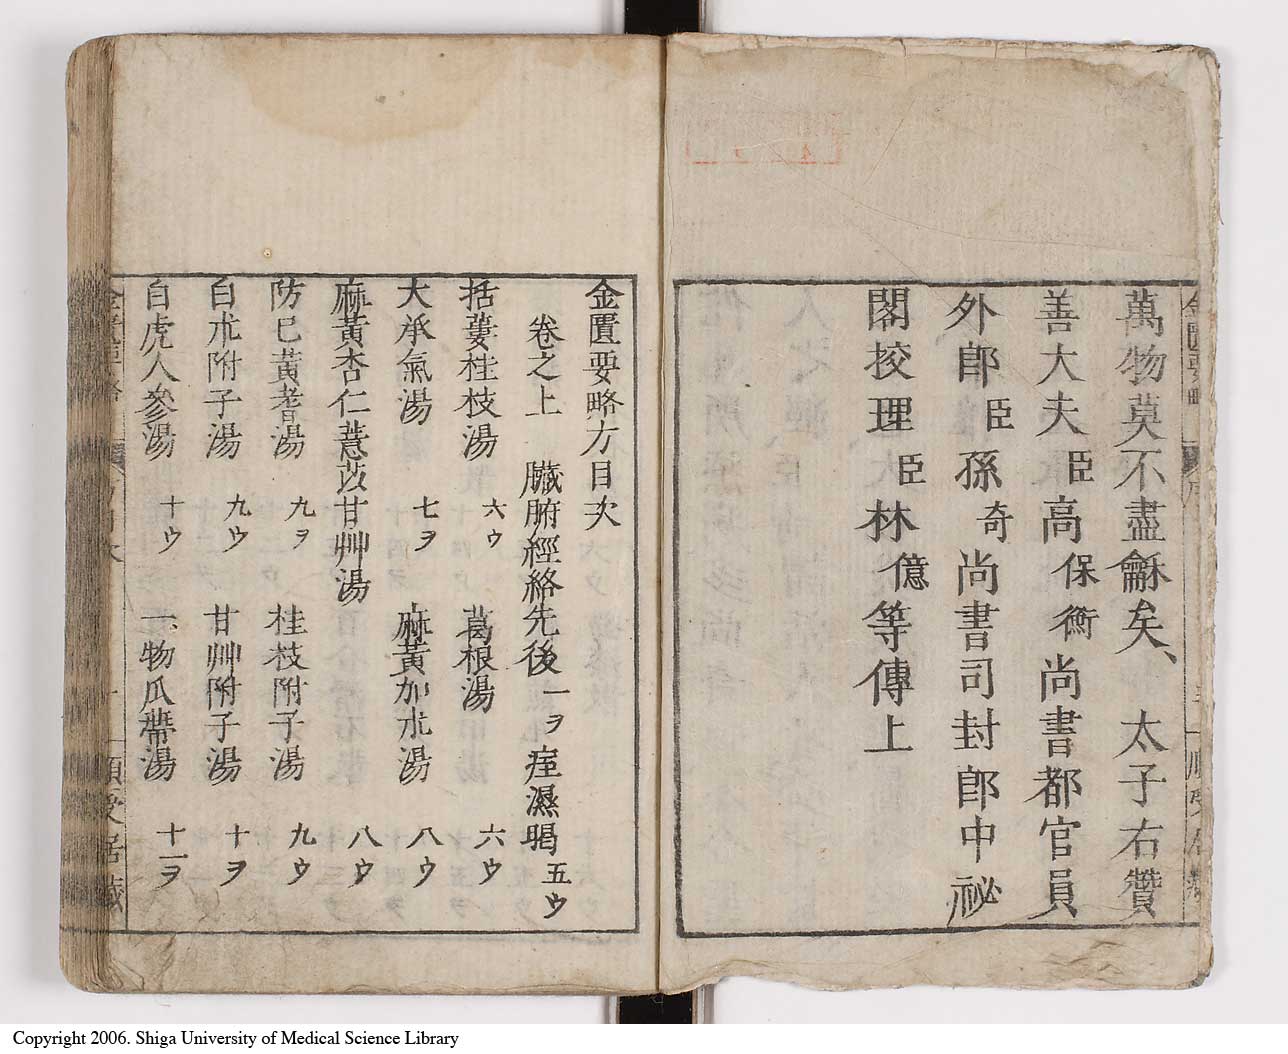 萬物莫不盡龢矣、太子右贊
善大夫臣高保衡尚書都官員
外郎臣孫奇尚書司封郎中祕
閣挍理臣林億等傳上
金匱要略方目次
卷之上 臟腑經絡先後一ヲ 痓濕暍五ウ
括蔞桂枝湯 六ウ 葛根湯 六ウ
大承氣湯 七ヲ 麻黃加朮湯 八ウ
麻黃杏仁薏苡甘艸湯 八ウ
防已黃耆湯 九ヲ 桂枝附子湯 九ウ
白朮附子湯 九ウ 甘艸附子湯 十ヲ
白虎人參湯 十ウ 一物瓜蔕湯 十一ヲ
Copyright 2006. Shiga University of Medical Science Library